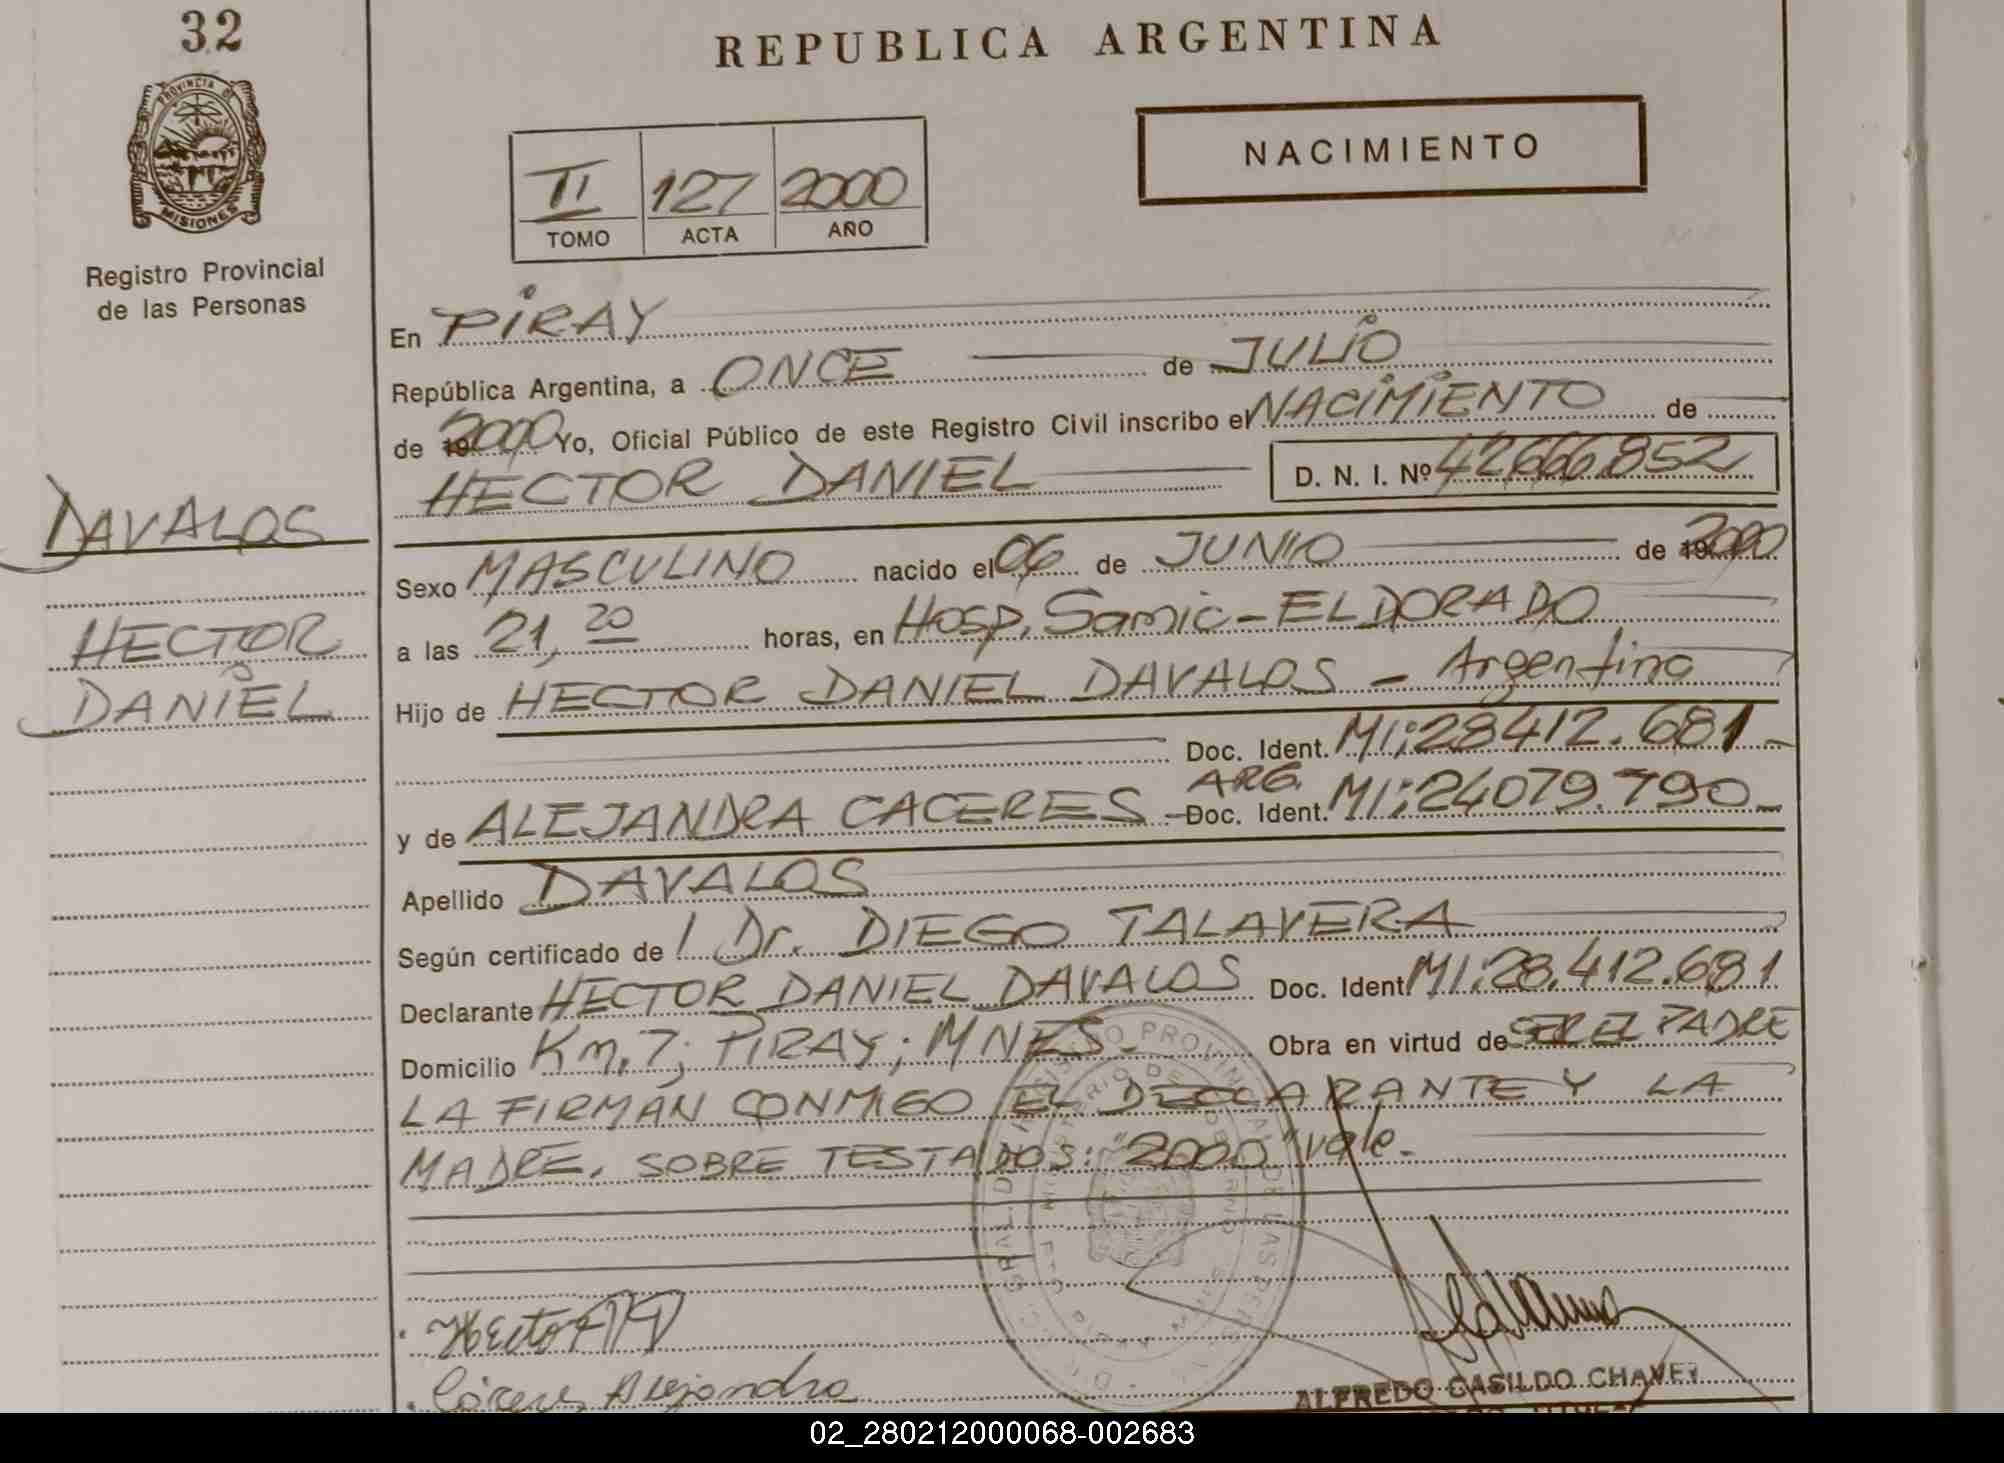 32
PROVINCIA DE
MISIONES
Registro Provincial
de las Personas
DAVALOS
HECTOR
DANIEL
REPUBLICA ARGENTINA
NACIMIENTO
II 127 2000
TOMO ACTA AÑO
En PIRAY
República Argentina, a ONCE de JULIO
de 2000 Yo, Oficial Público de este Registro Civil inscribo el NACIMIENTO de
HECTOR DANIEL D. N. I. Nº 42666852
Sexo MASCULINO nacido el 06 de JUNIO de 2000
a las 21,20 horas, en Hosp. Samic - ELDORADO
Hijo de HECTOR DANIEL DAVALOS - Argentino
Doc. Ident. MI: 28412.681-
ARG.
y de ALEJANDRA CACERES - Doc. Ident. MI: 24079.790-
Apellido DAVALOS
Según certificado de l Dr. DIEGO TALAVERA
Declarante HECTOR DANIEL DAVALOS Doc. Ident. MI: 28.412.681
Domicilio Km. 7; PIRAY; MNES- Obra en virtud de SER EL PADRE
LA FIRMAN CONMIGO EL DECLARANTE Y LA
MADRE. SOBRE TESTADOS: "2000" vale.-
Hector
Cáceres Alejandra
ALFREDO CASILDO CHAVEZ
02_280212000068-002683